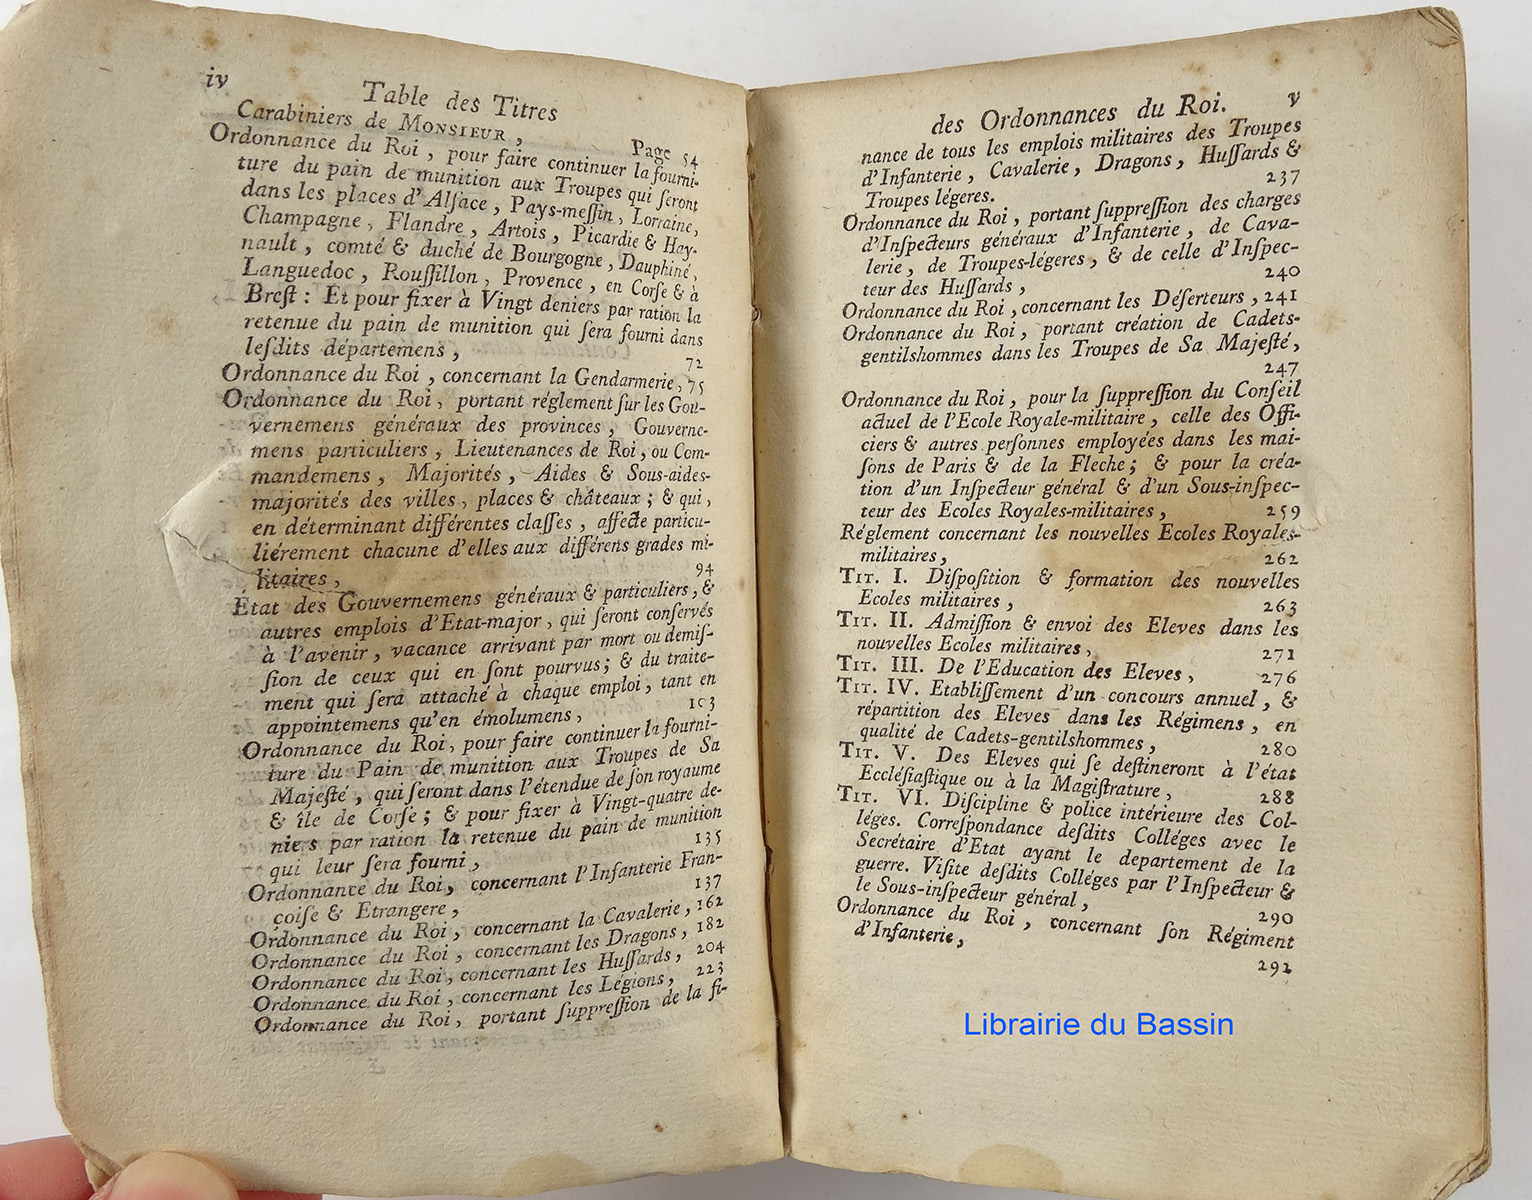 iv
Table des Titres
Carabiniers de MONSIEUR, Page 54
Ordonnance du Roi, pour faire continuer la fourni-
ture du pain de munition aux Troupes qui ſeront
dans les places d'Alſace, Pays-meſſin, Lorraine,
Champagne, Flandre, Artois, Picardie & Hay-
nault, comté & duché de Bourgogne, Dauphiné,
Languedoc, Rouſſillon, Provence, en Corſe & à
Breſt : Et pour fixer à Vingt deniers par ration la
retenue du pain de munition qui ſera fourni dans
leſdits départemens, 72
Ordonnance du Roi, concernant la Gendarmerie, 75
Ordonnance du Roi, portant réglement ſur les Gou-
vernemens généraux des provinces, Gouverne-
mens particuliers, Lieutenances de Roi, ou Com-
mandemens, Majorités, Aides & Sous-aides-
majorités des villes, places & châteaux ; & qui,
en déterminant différentes claſſes, affecte particu-
liérement chacune d'elles aux différens grades mi-
litaires, 94
État des Gouvernemens généraux & particuliers, &
autres emplois d'Etat-major, qui ſeront conſervés
à l'avenir, vacance arrivant par mort ou démiſ-
ſion de ceux qui en ſont pourvus ; & du traite-
ment qui ſera attaché à chaque emploi, tant en
appointemens qu'en émolumens, 103
Ordonnance du Roi, pour faire continuer la fourni-
ture du Pain de munition aux Troupes de Sa
Majeſté, qui ſeront dans l'étendue de ſon royaume
& île de Corſe ; & pour fixer à Vingt-quatre de-
niers par ration la retenue du pain de munition
qui leur ſera fourni, 135
Ordonnance du Roi, concernant l'Infanterie Fran-
çoiſe & Etrangere, 137
Ordonnance du Roi, concernant la Cavalerie, 162
Ordonnance du Roi, concernant les Dragons, 182
Ordonnance du Roi, concernant les Huſſards, 204
Ordonnance du Roi, concernant les Légions, 223
Ordonnance du Roi, portant ſuppreſſion de la fi-
des Ordonnances du Roi. v
nance de tous les emplois militaires des Troupes
d'Infanterie, Cavalerie, Dragons, Huſſards &
Troupes légeres. 237
Ordonnance du Roi, portant ſuppreſſion des charges
d'Inſpecteurs généraux d'Infanterie, de Cava-
lerie, de Troupes-légeres, & de celle d'Inſpec-
teur des Huſſards, 240
Ordonnance du Roi, concernant les Déſerteurs, 241
Ordonnance du Roi, portant création de Cadets-
gentilshommes dans les Troupes de Sa Majeſté,
247
Ordonnance du Roi, pour la ſuppreſſion du Conſeil
actuel de l'Ecole Royale-militaire, celle des Offi-
ciers & autres perſonnes employées dans les mai-
ſons de Paris & de la Fleche ; & pour la créa-
tion d'un Inſpecteur général & d'un Sous-inſpec-
teur des Ecoles Royales-militaires, 259
Réglement concernant les nouvelles Ecoles Royales-
militaires, 262
TIT. I. Diſpoſition & formation des nouvelles
Ecoles militaires, 263
TIT. II. Admiſſion & envoi des Eleves dans les
nouvelles Ecoles militaires, 271
TIT. III. De l'Education des Eleves, 276
TIT. IV. Etabliſſement d'un concours annuel, &
répartition des Eleves dans les Régimens, en
qualité de Cadets-gentilshommes, 280
TIT. V. Des Eleves qui ſe deſtineront à l'état
Eccléſiaſtique ou à la Magiſtrature, 288
TIT. VI. Diſcipline & police intérieure des Col-
léges. Correſpondance deſdits Colléges avec le
Secrétaire d'Etat ayant le departement de la
guerre. Viſite deſdits Colléges par l'Inſpecteur &
le Sous-inſpecteur général, 290
Ordonnance du Roi, concernant ſon Régiment
d'Infanterie, 292
Librairie du Bassin